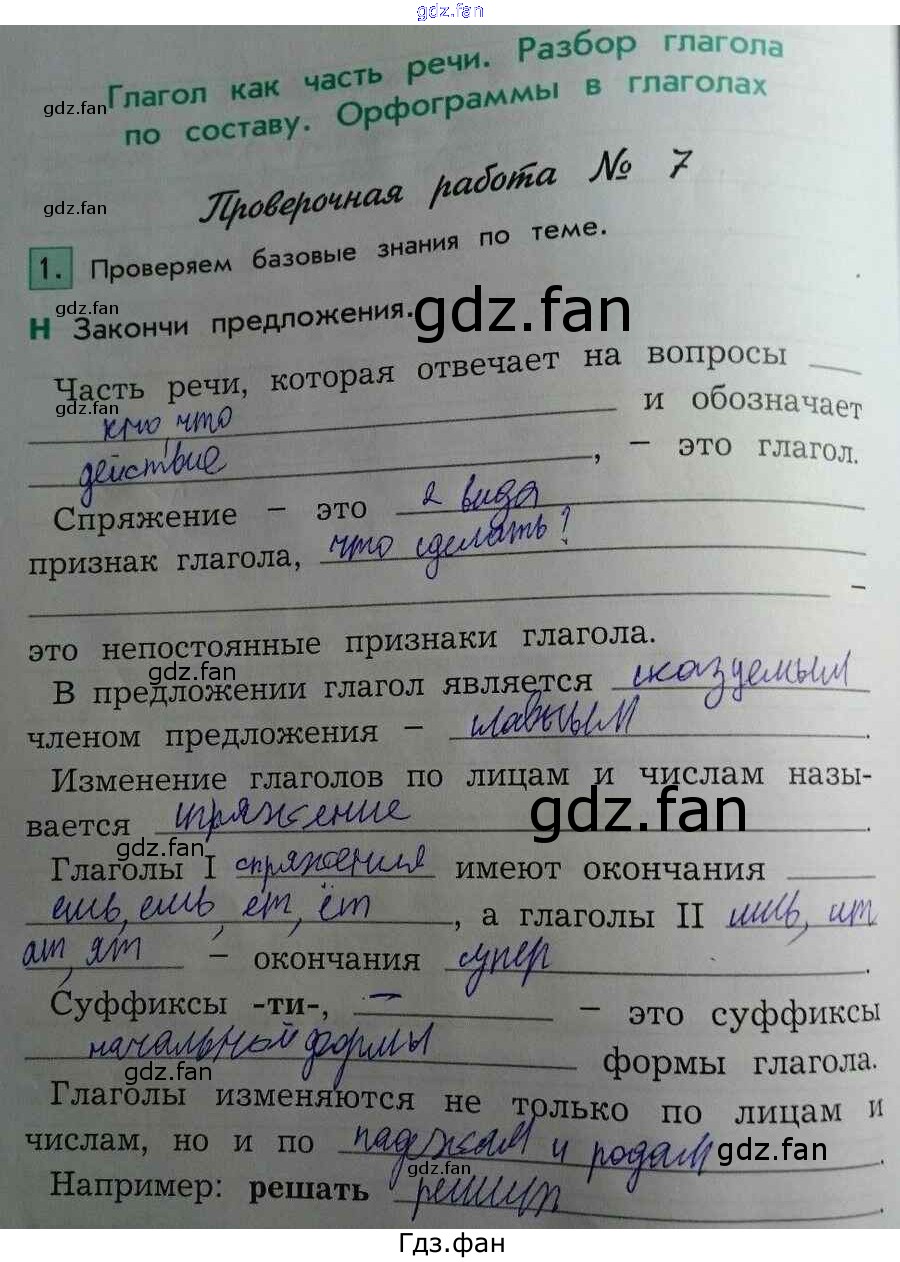 gdz.fan
Глагол как часть речи. Разбор глагола
gdz.fan
по составу. Орфограммы в глаголах
Проверочная работа № 7
gdz.fan
1. Проверяем базовые знания по теме.
gdz.fan
Н Закончи предложения.
gdz.fan
Часть речи, которая отвечает на вопросы
gdz.fan
кто что и обозначает
действие, – это глагол.
Спряжение – это 2 вида
признак глагола, что сделать?
–
это непостоянные признаки глагола.
gdz.fan
В предложении глагол является сказуемым
членом предложения – главным.
Изменение глаголов по лицам и числам назы-
gdz.fan
вается спряжение.
gdz.fan
Глаголы I спряжения имеют окончания
ешь, ешь, ет, ёт, а глаголы II ишь, ит
ат, ят – окончания супер.
Суффиксы -ти-, — – это суффиксы
начальной формы формы глагола.
gdz.fan
Глаголы изменяются не только по лицам и
числам, но и по падежам и родам.
gdz.fan
gdz.fan
Например: решать
Гдз.фан